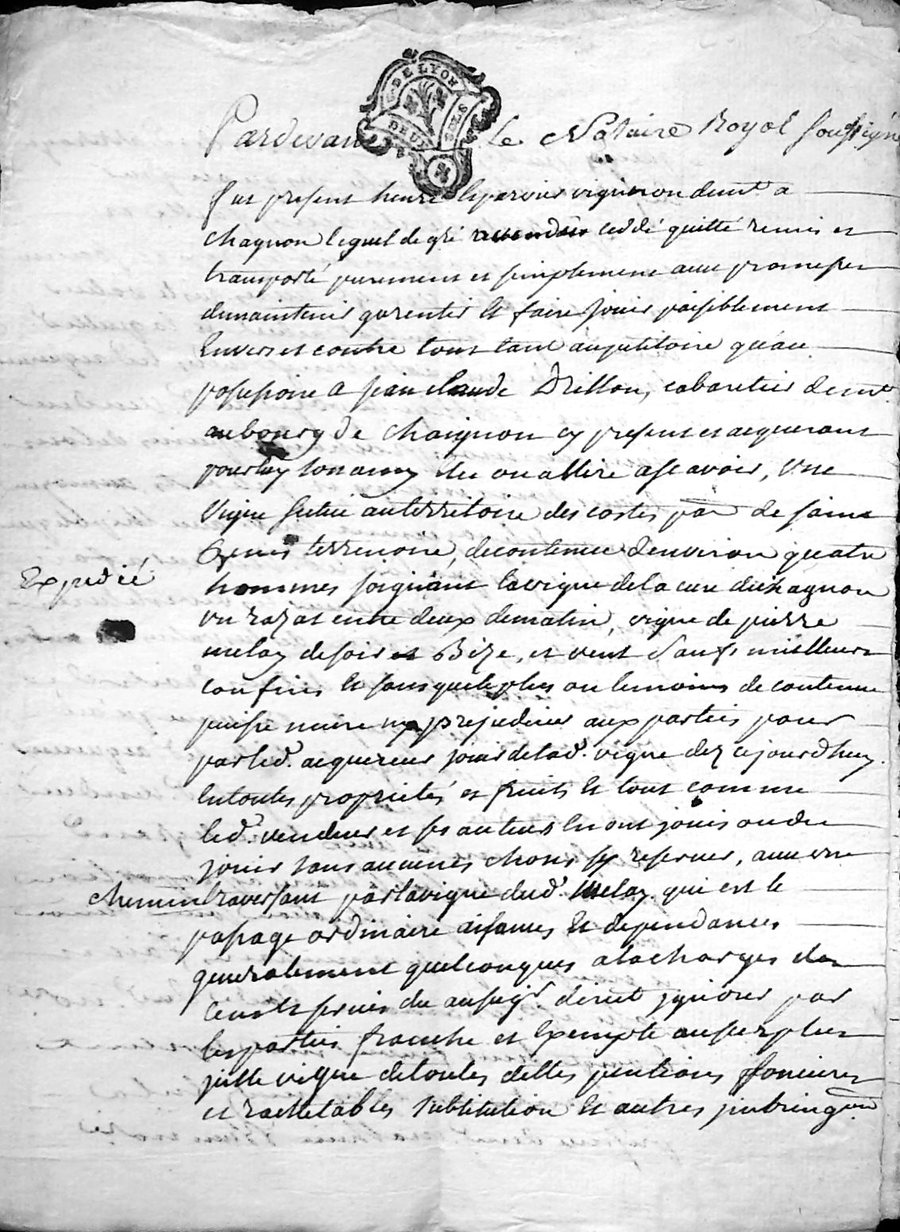 G. DE LYON
DEUX SOLS
Pardevant le Notaire Royal soussigné
fut present henry Eparvier vigneron demt. a
chagnon lequel de gré ceddé quitté remis et
transporté purement et simplement avec promesse
de maintenir garentir et faire jouir paisiblement
Envers et contre tous tant au petitoire qu'au
posessoire a jean claude Drillon, cabaretier demt.
au bourg de chaignon cy present et acquerant
pour luy son amy elu ou a elire a scavoir, une
vigne située au territoire des costes parr. de saint
Genis terrenoire, de contenue d'environ quatre
Expedié
hommes joignant la vigne de la cure du chagnon
un razat entre deux de matin, vigne de pierre
melay de soir et Bize, et vent sauf meilleurs
confins et sans que le plus ou le moins de contenue
puisse nuire ny prejudicier aux parties pour
par led. acquereur jouir de lad. vigne dez cejourd'huy
en toutes proprietés et fruits et tout comme
led. vendeur et ses auteurs en ont jouis ou du
jouir sans aucunes choses se reserver, avec un
chemin traversant par la vigne dud. Melay qui est le
passage ordinaire aisances et dependances
generalement quelconques a la charge des
cens et servis du au seigr. direct ignoré par
les parties franche et Exempte au surplus
jcelle vigne de toutes dettes pentions foncieres
et rachetables substitution et autres